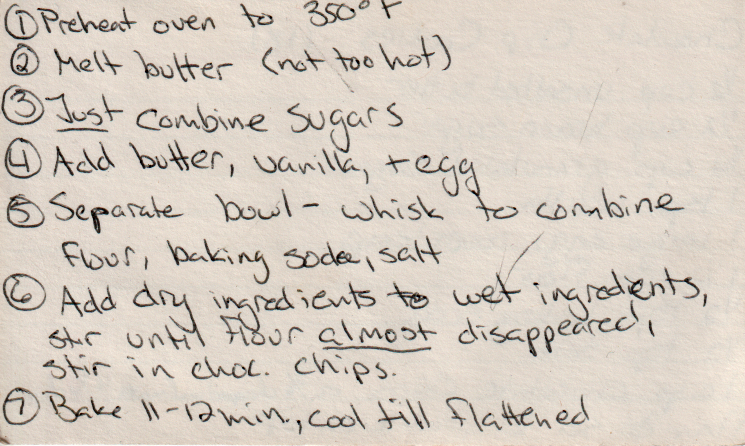 ① Preheat oven to 350° F
② Melt butter (not too hot)
③ Just combine sugars
④ Add butter, vanilla, + egg
⑤ Separate bowl - whisk to combine
flour, baking soda, salt
⑥ Add dry ingredients to wet ingredients,
stir until flour almost disappeared,
stir in choc. chips.
⑦ Bake 11-12 min., cool till flattened